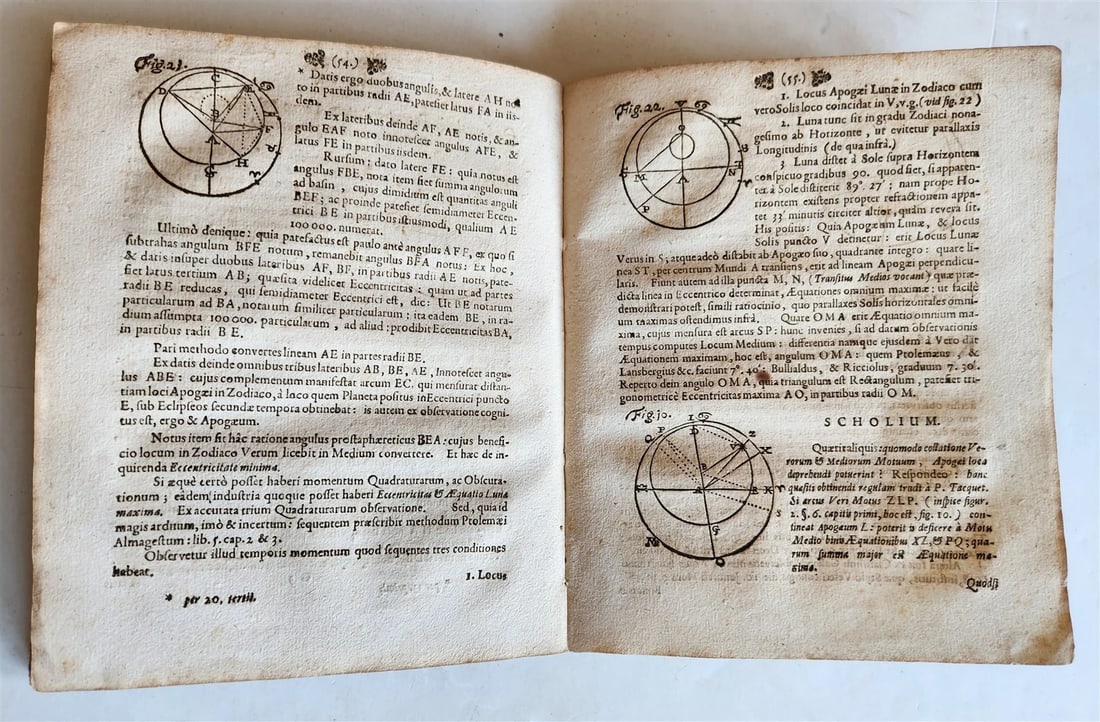 Fig. 21.
(54.)
* Datis ergo duobus angulis, & latere AH no-
to in partibus radii AE, patefiet latus FA in iis-
dem.
Ex lateribus deinde AF, AE notis, & an-
gulo EAF noto innotescet angulus AFE, &
latus FE in partibus iisdem.
Rursum: dato latere FE: quia notus est
angulus FBE, nota item fiet summa angulorum
ad basin, cujus dimidium est quantitas anguli
BEF; ac proinde patefiet semidiameter Eccen-
trici BE in partibus istiusmodi, qualium AE
100 000. numerat.
Ultimò denique: quia patefactus est paulo antè angulus AFE, ex quo si
subtrahas angulum BFE notum, remanebit angulus BFA notus: Ex hoc,
& datis insuper duobus lateribus AF, BF, in partibus radii AE notis, pate-
fiet latus tertium AB; quæsita videlicet Eccentricitas: quam ut ad partes
radii BE reducas, qui semidiameter Eccentrici est, dic: Ut BE notarum
particularum ad BA, notarum similiter particularum: ita eadem BE, in ra-
dium assumpta 100 000. particularum, ad aliud: prodibit Eccentricitas BA,
in partibus radii BE.
Pari methodo convertes lineam AE in partes radii BE.
Ex datis deinde omnibus tribus lateribus AB, BE, AE, Innotescet angu-
lus ABE: cujus complementum manifestat arcum EC, qui mensurat distan-
tiam loci Apogæi in Zodiaco, à loco quem Planeta positus in Eccentrici puncto
E, sub Eclipseos secundæ tempora obtinebat: is autem ex observatione cogni-
tus est, ergo & Apogæum.
Notus item fit hâc ratione angulus prostaphæreticus BEA: cujus benefi-
cio locum in Zodiaco Verum licebit in Medium convertere. Et hæc de in-
quirenda Eccentricitate minima.
Si æquè certò posset haberi momentum Quadraturarum, ac Obscura-
tionum; eâdem industria quoque posset haberi Eccentricitas & Æquatio Lunæ
maxima. Ex accurata trium Quadraturarum observatione. Sed, quia id
magis arduum, imò & incertum: sequentem præscribit methodum Ptolemæi
Almagestum: lib. 5. cap. 2 & 3.
Observetur illud temporis momentum quod sequentes tres conditiones
habeat.
1. Locus
* per 20. tertii.
Fig. 22.
(55.)
1. Locus Apogæi Lunæ in Zodiaco cum
vero Solis loco coincidat in V, v.g. (vid fig. 22)
2. Luna tunc sit in gradu Zodiaci nona-
gesimo ab Horizonte, ut evitetur parallaxis
Longitudinis (de qua infrà.)
3 Luna distet à Sole supra Horizontem
conspicuo gradibus 90. quod fiet, si apparen-
ter à Sole distiterit 89° 27′: nam prope Ho-
rizontem existens propter refractionem appa-
ret 33′ minutis circiter altior, quàm revera sit.
His positis: Quia Apogæum Lunæ, & locus
Solis puncto V definetur: erit Locus Lunæ
Verus in S; atque adeò distabit ab Apogæo suo, quadrante integro: quare li-
nea ST, per centrum Mundi A transiens, erit ad lineam Apogæi perpendicu-
laris. Fiunt autem ad illa puncta M, N, (Transitus Medios vocant) quæ præ-
dicta linea in Eccentrico determinat, Æquationes omnium maximæ: ut facilè
demonstrari potest, simili ratiocinio, quo parallaxes Solis horizontales omni-
um maximas ostendimus infrà. Quare OMA erit Æquatio omnium ma-
xima, cujus mensura est arcus SP: hunc invenies, si ad datum observationis
tempus computes Locum Medium: differentia namque ejusdem à Vero dat
Æquationem maximam, hoc est, angulum OMA: quem Ptolemæus, &
Lansbergius &c. faciunt 7°. 40′: Bullialdus, & Ricciolus, graduum 7. 30′.
Reperto dein angulo OMA, quia triangulum est Rectangulum, patefiet tri-
gonometricè Eccentricitas maxima AO, in partibus radii OM.
Fig. 10.
SCHOLIUM.
Quæritaliquis: quomodo collatione Ve-
rorum & Mediorum Motuum, Apogæi loca
deprehendi potuerint? Respondeo: hanc
quæsiti obtinendi regulam tradi à P. Tacquet.
Si arcus Veri Motus ZLP. (inspice figur.
2. §. 6. capitis primi, hoc est, fig. 10.) con-
tineat Apogæum L: poterit is deficere à Motu
Medio binis Æquationibus XL, & PQ; qua-
rum summa major est Æquatione ma-
xima.
Quodsi